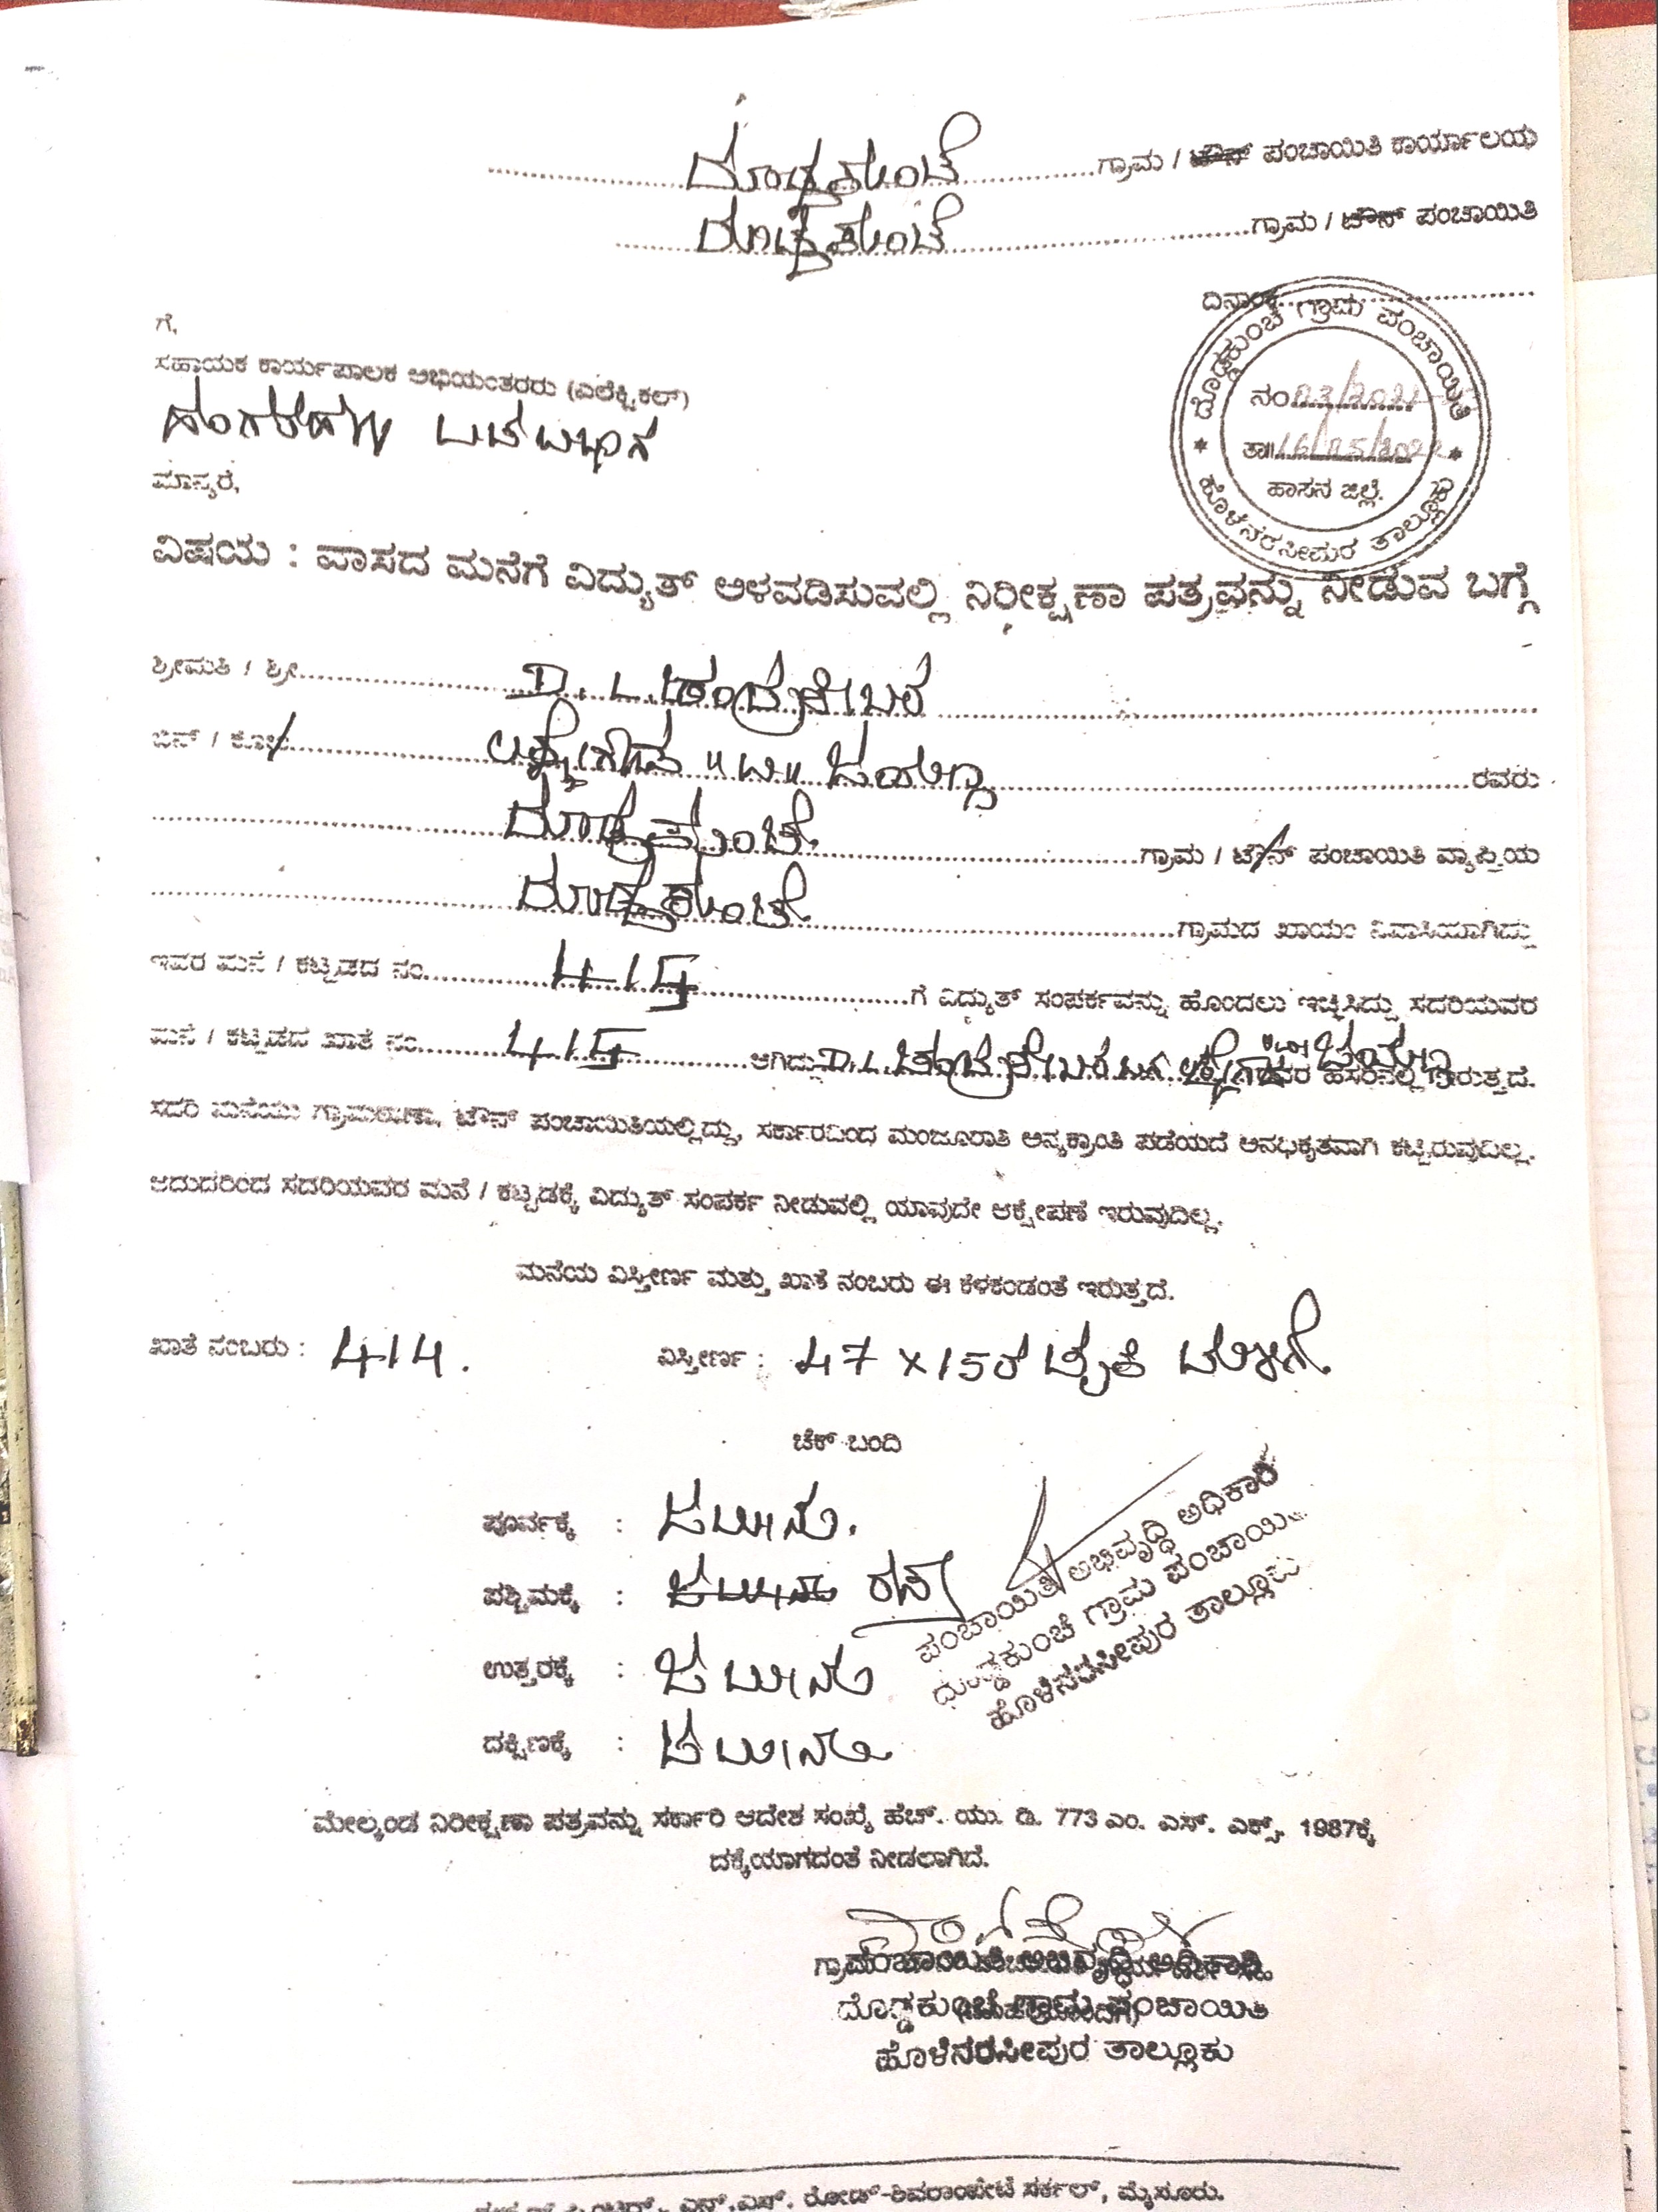 ದೊಡ್ಡಕುಂಚೆ ಗ್ರಾಮ / ಟೌನ್ ಪಂಚಾಯಿತಿ ಕಾರ್ಯಾಲಯ
ದೊಡ್ಡಕುಂಚೆ ಗ್ರಾಮ / ಟೌನ್ ಪಂಚಾಯಿತಿ
ದಿನಾಂಕ
ದೊಡ್ಡಕುಂಚೆ ಗ್ರಾಮ ಪಂಚಾಯಿತಿ
ನಂ
ತಾ॥ 16/05/2022
ಹಾಸನ ಜಿಲ್ಲೆ.
ಹೊಳೆನರಸೀಪುರ ತಾಲ್ಲೂಕು
ಗೆ,
ಸಹಾಯಕ ಕಾರ್ಯಪಾಲಕ ಅಭಿಯಂತರರು (ಎಲೆಕ್ಟ್ರಿಕಲ್)
ಮಾನ್ಯರೆ,
ವಿಷಯ : ವಾಸದ ಮನೆಗೆ ವಿದ್ಯುತ್ ಅಳವಡಿಸುವಲ್ಲಿ ನಿರೀಕ್ಷಣಾ ಪತ್ರವನ್ನು ನೀಡುವ ಬಗ್ಗೆ
ಶ್ರೀಮತಿ / ಶ್ರೀ D. L. ಚಂದ್ರಶೇಖರ
ಬಿನ್ / ಕೋಂ ಲಕ್ಕೇಗೌಡ ರವರು
ದೊಡ್ಡಕುಂಚೆ ಗ್ರಾಮ / ಟೌನ್ ಪಂಚಾಯಿತಿ ವ್ಯಾಪ್ತಿಯ
ದೊಡ್ಡಕುಂಚೆ ಗ್ರಾಮದ ಖಾಯಂ ನಿವಾಸಿಯಾಗಿದ್ದು
ಇವರ ಮನೆ / ಕಟ್ಟಡದ ನಂ 415 ಗೆ ವಿದ್ಯುತ್ ಸಂಪರ್ಕವನ್ನು ಹೊಂದಲು ಇಚ್ಛಿಸಿದ್ದು ಸದರಿಯವರ
ಮನೆ / ಕಟ್ಟಡದ ಖಾತೆ ನಂ 415 ಆಗಿದ್ದು D. L. ಚಂದ್ರಶೇಖರ ಬಿನ್ ಲಕ್ಕೇಗೌಡ ರವರ ಹೆಸರಿನಲ್ಲಿ ಇರುತ್ತದೆ.
ಸದರಿ ಮನೆಯು ಗ್ರಾಮಠಾಣಾ, ಟೌನ್ ಪಂಚಾಯಿತಿಯಲ್ಲಿದ್ದು, ಸರ್ಕಾರದಿಂದ ಮಂಜೂರಾತಿ ಅನ್ಯಕ್ರಾಂತಿ ಪಡೆಯದೆ ಅನಧಿಕೃತವಾಗಿ ಕಟ್ಟಿರುವುದಿಲ್ಲ.
ಆದುದರಿಂದ ಸದರಿಯವರ ಮನೆ / ಕಟ್ಟಡಕ್ಕೆ ವಿದ್ಯುತ್ ಸಂಪರ್ಕ ನೀಡುವಲ್ಲಿ ಯಾವುದೇ ಆಕ್ಷೇಪಣೆ ಇರುವುದಿಲ್ಲ.
ಮನೆಯ ವಿಸ್ತೀರ್ಣ ಮತ್ತು ಖಾತೆ ನಂಬರು ಈ ಕೆಳಕಂಡಂತೆ ಇರುತ್ತದೆ.
ಖಾತೆ ನಂಬರು : 414. ವಿಸ್ತೀರ್ಣ : 47 x 15ರ
ಚೆಕ್ ಬಂದಿ
ಪೂರ್ವಕ್ಕೆ : ಜಮೀನು.
ಪಶ್ಚಿಮಕ್ಕೆ : ಜಮೀನು ರಸ್ತೆ
ಉತ್ತರಕ್ಕೆ : ಜಮೀನು
ದಕ್ಷಿಣಕ್ಕೆ : ಜಮೀನು
ಪಂಚಾಯಿತಿ ಅಭಿವೃದ್ಧಿ ಅಧಿಕಾರಿ
ದೊಡ್ಡಕುಂಚೆ ಗ್ರಾಮ ಪಂಚಾಯಿತಿ
ಹೊಳೆನರಸೀಪುರ ತಾಲ್ಲೂಕು
ಮೇಲ್ಕಂಡ ನಿರೀಕ್ಷಣಾ ಪತ್ರವನ್ನು ಸರ್ಕಾರಿ ಆದೇಶ ಸಂಖ್ಯೆ ಹೆಚ್. ಯು. ಡಿ. 773 ಎಂ. ಎನ್. ಎಕ್ಸ್. 1987ಕ್ಕೆ
ದಕ್ಕೆಯಾಗದಂತೆ ನೀಡಲಾಗಿದೆ.
ಪಂಚಾಯಿತಿ ಅಭಿವೃದ್ಧಿ ಅಧಿಕಾರಿ
ದೊಡ್ಡಕುಂಚೆ ಗ್ರಾಮ ಪಂಚಾಯಿತಿ
ಹೊಳೆನರಸೀಪುರ ತಾಲ್ಲೂಕು
ಎನ್.ಎಸ್. ರೋಡ್-ಶಿವರಾಂಪೇಟೆ ಸರ್ಕಲ್, ಮೈಸೂರು.